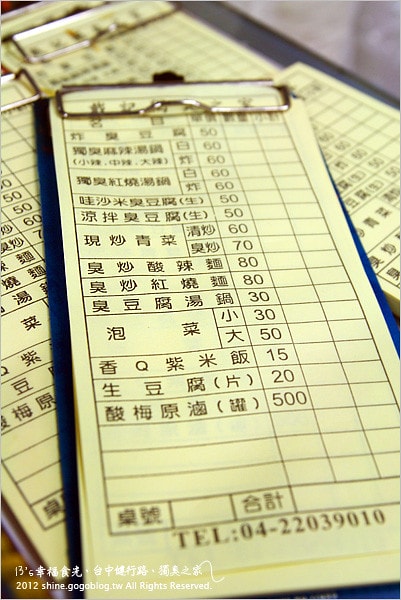 名 目 單價 數量 小計
炸臭豆腐 50
獨臭麻辣湯鍋 白 60
(小辣.中辣.大辣) 炸 60
獨臭紅燒湯鍋 白 60
炸 60
哇沙米臭豆腐(生) 50
涼拌臭豆腐(生) 50
現炒青菜 清炒 60
臭炒 70
臭炒酸辣麵 80
臭炒紅燒麵 80
臭豆腐湯鍋 30
泡菜 小 30
大 50
香Q紫米飯 15
生豆腐(片) 20
酸梅原滷(罐) 500
桌號 合計
TEL:04-22039010
B's幸福食光·台中健行路·獨臭之家
2012 shine.gogoblog.tw All Rights Reserved.